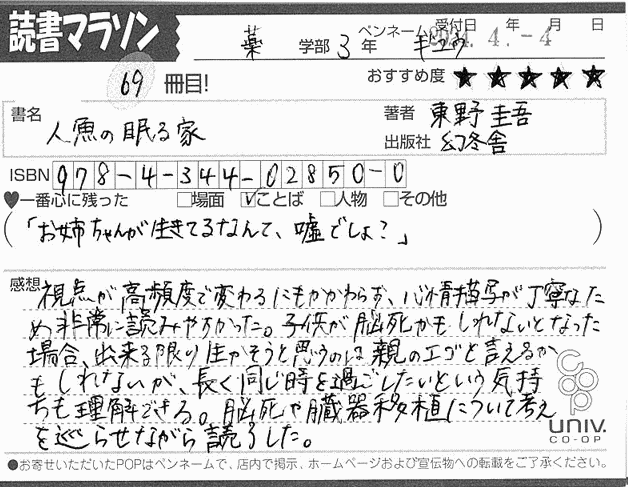 読書マラソン
薬 学部 3 年 ペンネーム 受付日 年 月 日
4.-4
69 冊目! おすすめ度 ★★★★★
書名 人魚の眠る家
著者 東野圭吾
出版社 幻冬舎
ISBN 978-4-344-02850-0
♥一番心に残った □場面 ☑ことば □人物 □その他
(「お姉ちゃんが生きてるなんて、嘘でしょ?」)
感想 視点が高頻度で変わるにもかかわらず、心情描写が丁寧なた
め非常に読みやすかった。子供が脳死かもしれないとなった
場合、出来る限り生かそうと思うのは親のエゴと言えるか
もしれないが、長く同じ時を過ごしたいという気持
ちも理解できる。脳死や臓器移植について考え
を巡らせながら読了した。
coop
UNIV.
CO-OP
●お寄せいただいたPOPはペンネームで、店内で掲示、ホームページおよび宣伝物への転載をご了承ください。